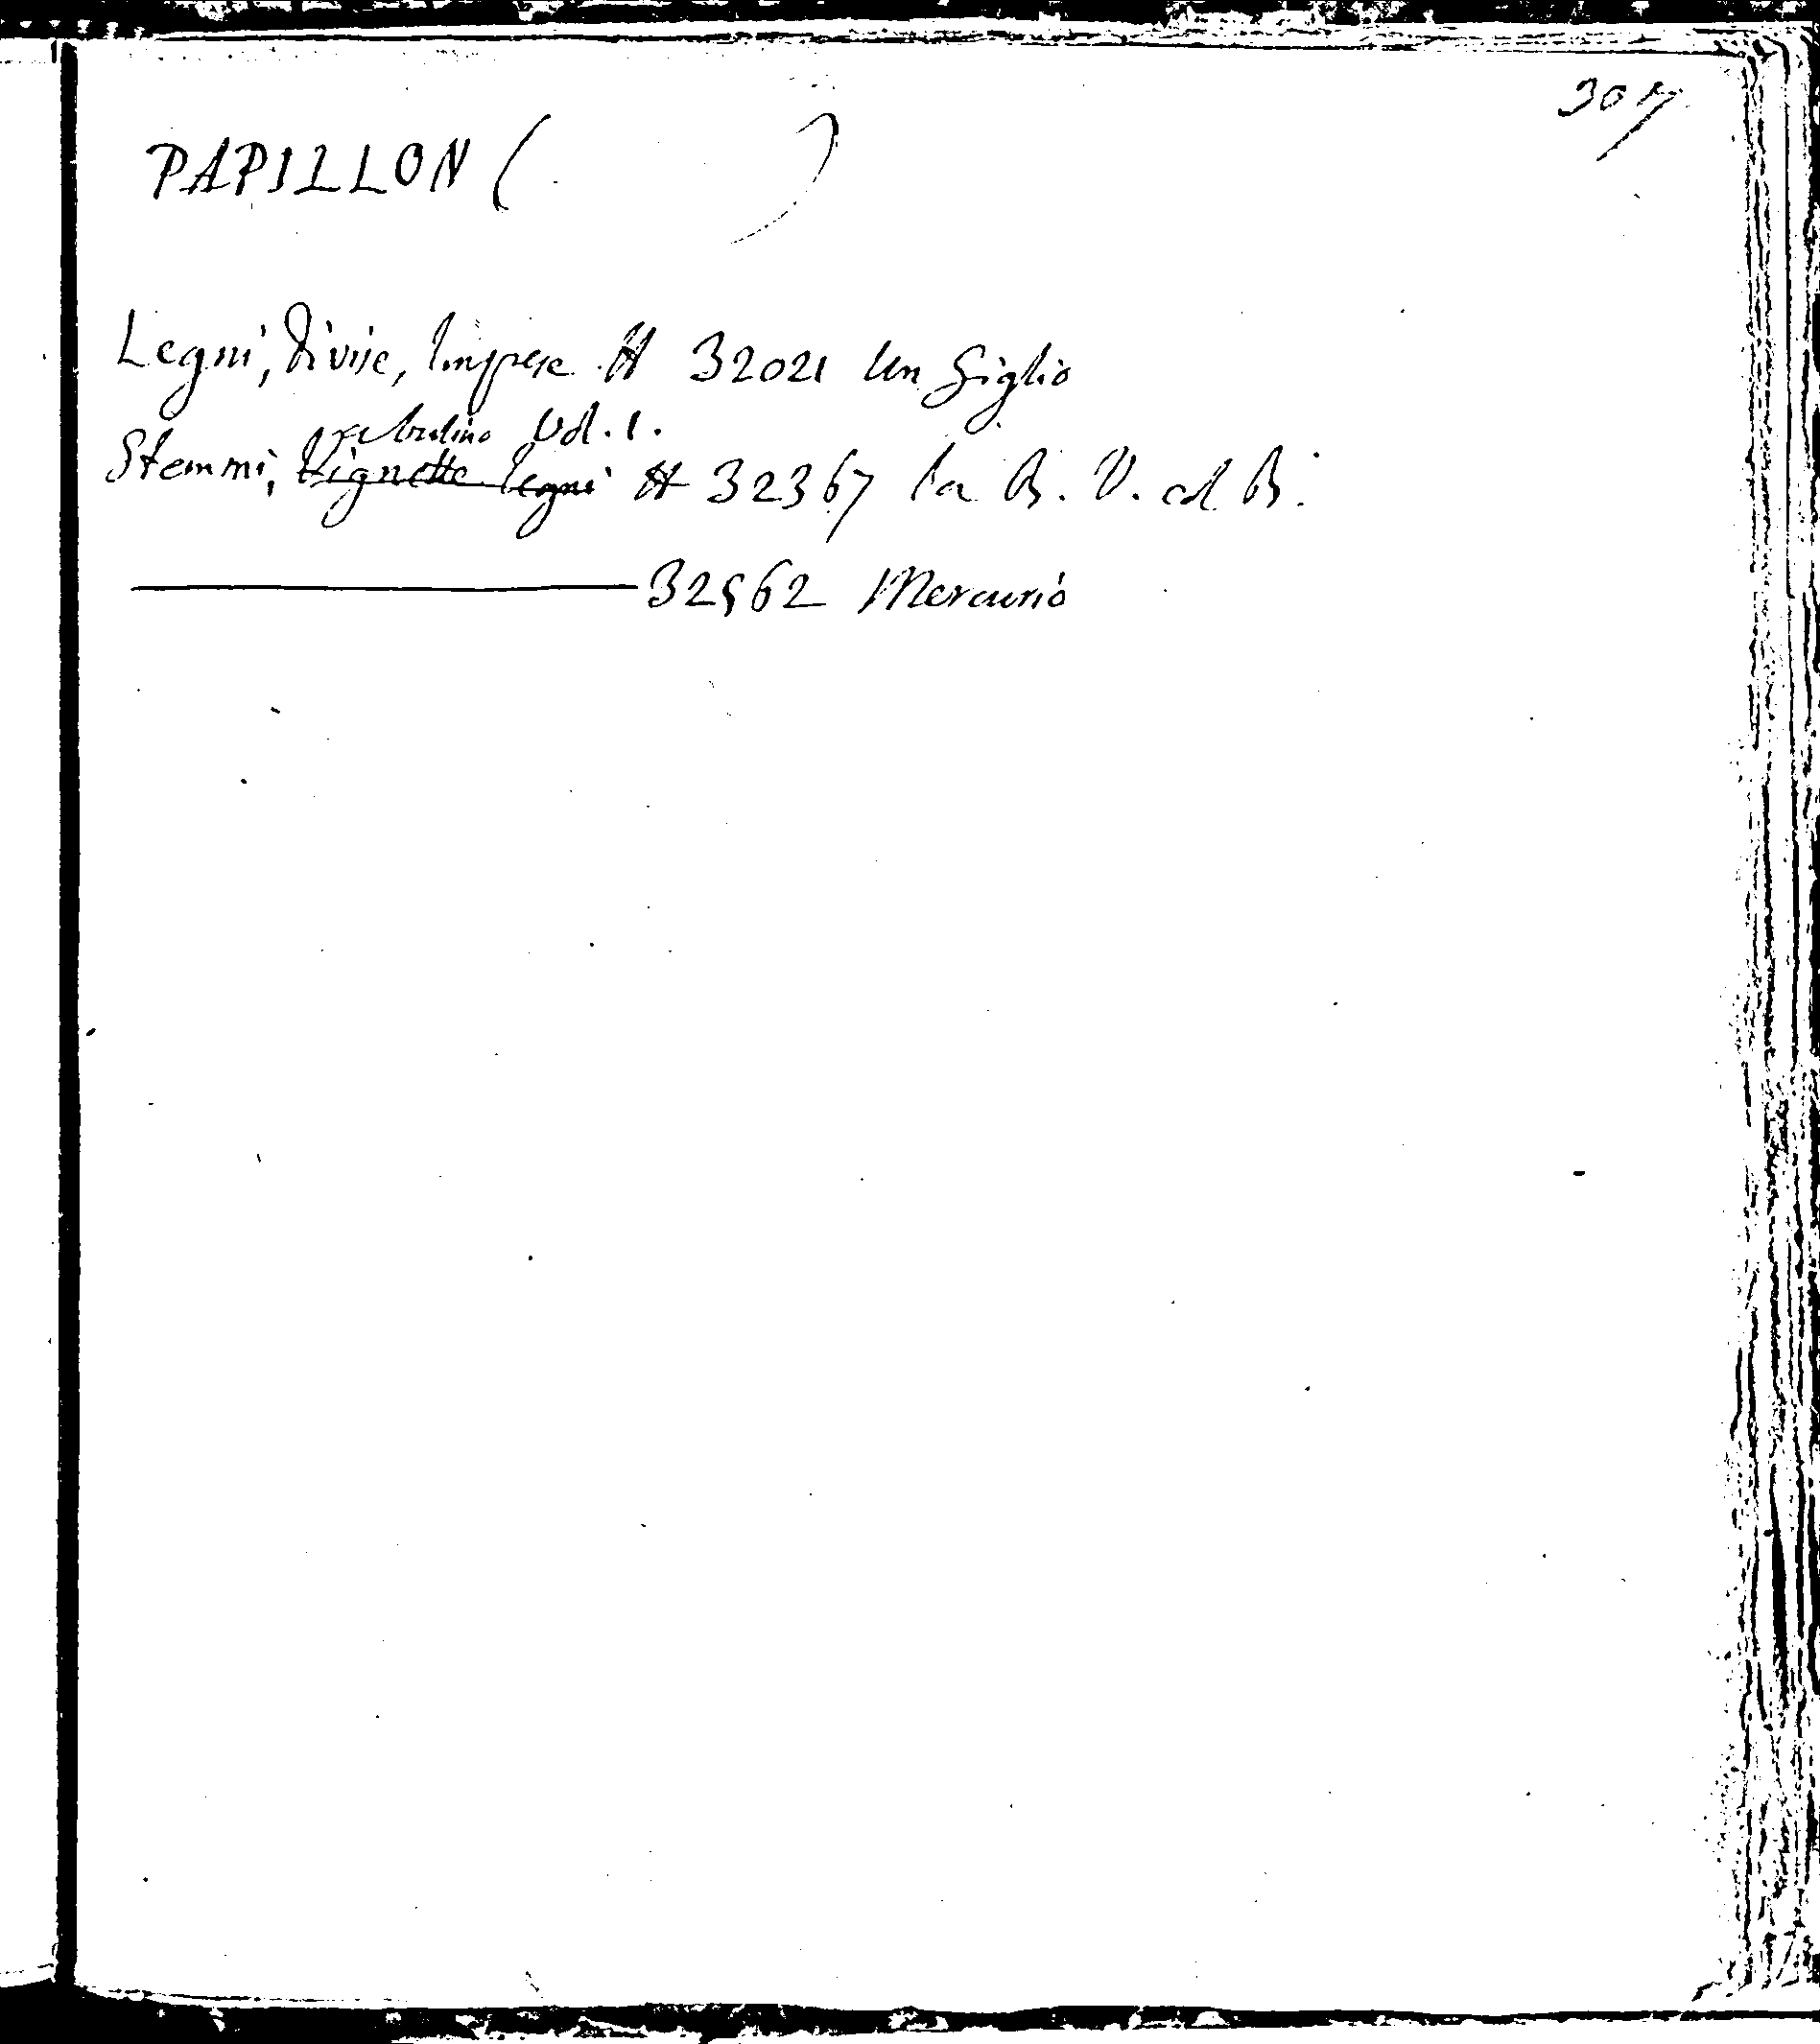 307
PAPILLON ( )
Legni, Divise, Imprese # 32021 Un Giglio
Vol. 1.
Stemmi, Vignette Legni # 32367 La B. V. col B.
32562 Mercurio